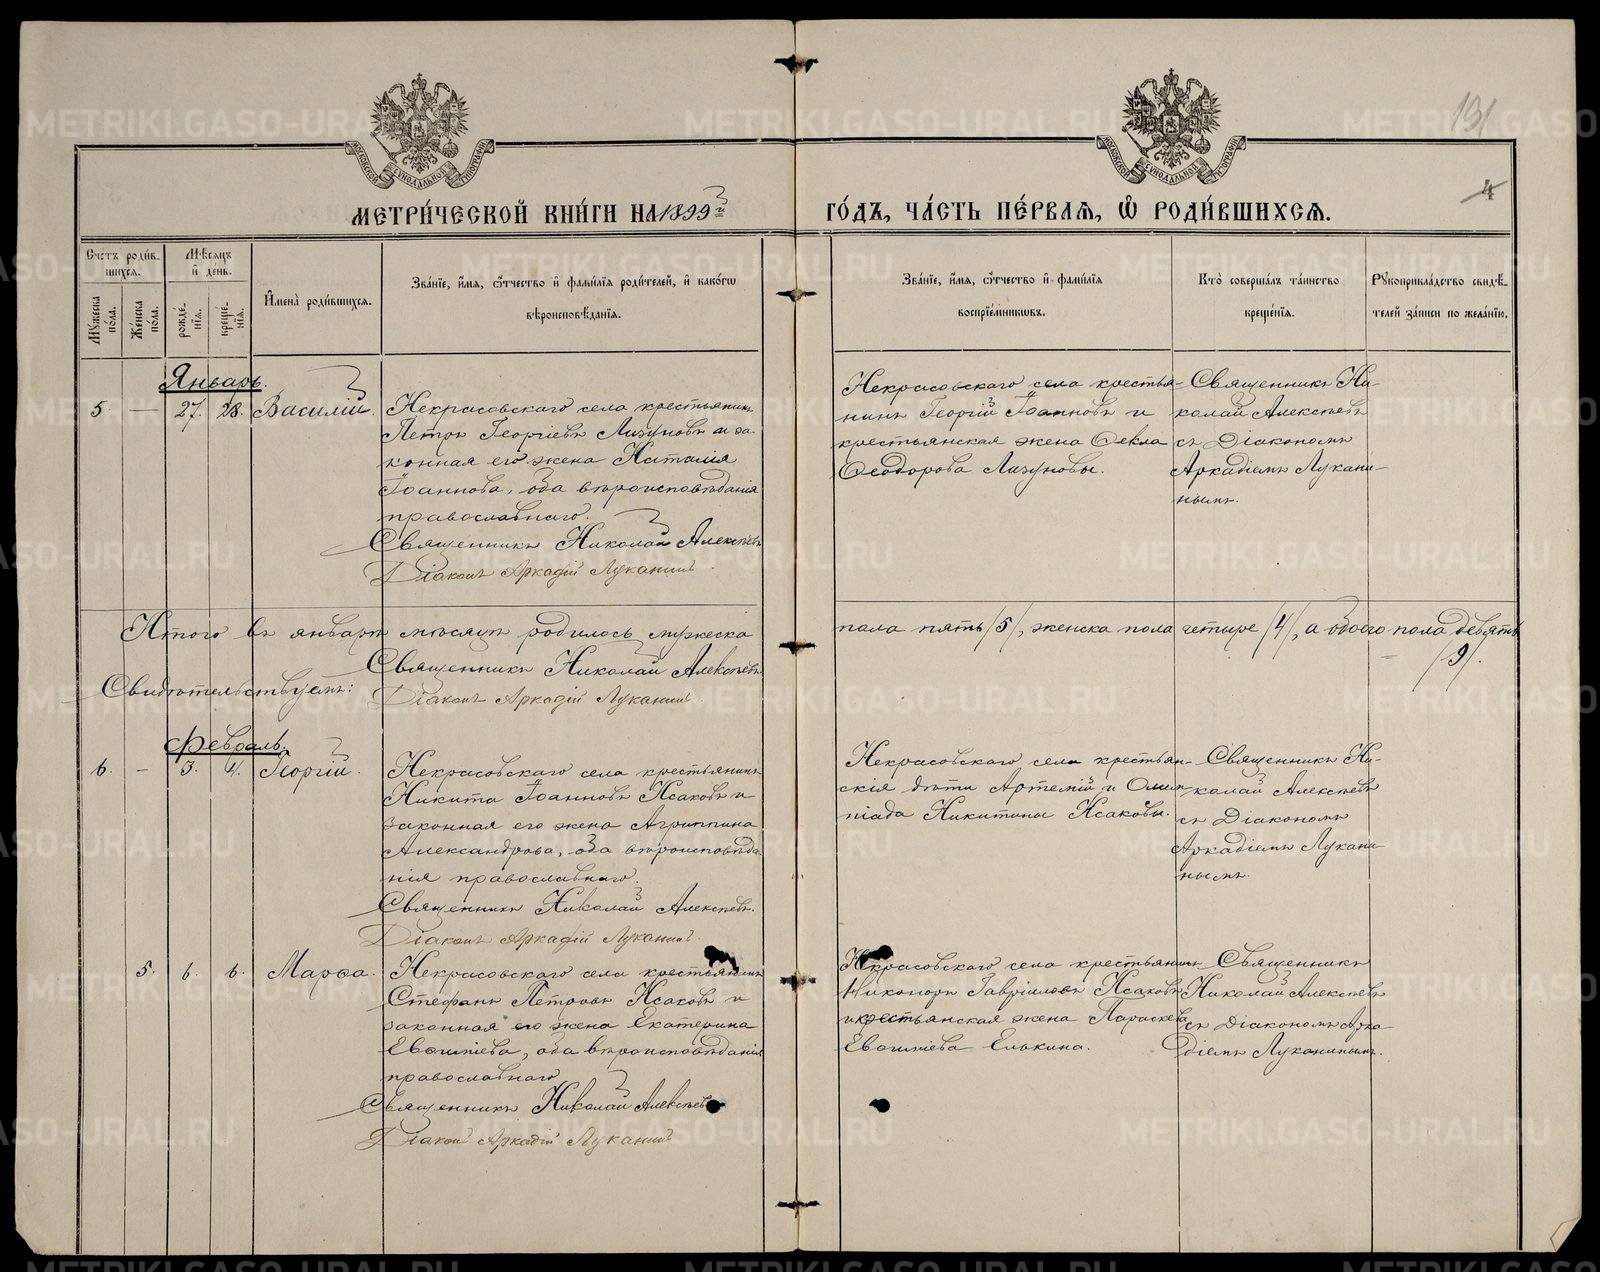 METRIKI.GASO-URAL.RU
191
4
МОСКОВСКОЙ СѴНОДАЛЬНОЙ ТИПОГРАФІИ
МОСКОВСКОЙ СѴНОДАЛЬНОЙ ТИПОГРАФІИ
МЕТРИ́ЧЕСКОЙ КНИ́ГИ НА 1899й
ГО́ДЪ, ЧА́СТЬ ПЕ́РВАѦ, Ѽ РОДИ́ВШИХСѦ.
Счетъ роди́в-
шихсѧ.
Мѣ́сѧцъ
и҆ де́нь.
Мꙋжеска по́ла.
Же́нска по́ла.
рожде́-
нїѧ.
креще́-
нїѧ.
И҆мена̀ роди́вшихсѧ.
Зва́нїе, и҆́мѧ, ѻ҆́тчество и҆ фамѝлїѧ роди́телей, и҆ како́гѡ
вѣроисповѣ́данїѧ.
Зва́нїе, и҆́мѧ, ѻ҆́тчество и҆ фамѝлїѧ
воспрїе́мникѡвъ.
Кто̀ соверша́лъ та́инство
креще́нїѧ.
Рꙋкоприкла́дство свидѣ́-
телей за́писи по жела́нїю.
Январь.
5 — 27. 28. Василій.
Некрасовскаго села крестьянинъ
Петръ Георгіевъ Лизуновъ и за-
конная его жена Наталія
Іоаннова, оба вѣроисповѣданія
православнаго.
Священникъ Николай Алексѣевъ
Діаконъ Аркадій Луканинъ.
Некрасовскаго села крестья-
нинъ Георгій Іоанновъ и
крестьянская жена Ѳекла
Ѳеодорова Лизуновы.
Священникъ Ни-
колай Алексѣевъ
съ Діакономъ
Аркадіемъ Лукани-
нымъ.
Итого въ январѣ мѣсяцѣ родилось мужеска
пола пять /5/, женска пола четыре /4/, а обоего пола девять
/9/.
Священникъ Николай Алексѣевъ
Свидѣтельствуемъ:
Діаконъ Аркадій Луканинъ.
Февраль.
6. — 3. 4. Георгій.
Некрасовскаго села крестьянинъ
Никита Іоанновъ Исаковъ и
законная его жена Агриппина
Александрова, оба вѣроисповѣда-
нія православнаго.
Священникъ Николай Алексѣевъ.
Діаконъ Аркадій Луканинъ.
Некрасовскаго села крестьян-
скія дѣти Артемій и Олим-
піада Никитины Исаковы.
Священникъ Ни-
колай Алексѣевъ
съ Діакономъ
Аркадіемъ Лукани-
нымъ.
5. 6. 6. Марѳа.
Некрасовскаго села крестьянинъ
Стефанъ Петровъ Исаковъ и
законная его жена Екатерина
Евѳиміева, оба вѣроисповѣданія
православнаго
Священникъ Николай Алексѣевъ
Діаконъ Аркадій Луканинъ
Некрасовскаго села крестьянинъ
Никоноръ Гавріиловъ Исаковъ
и крестьянская жена Параскева
Евѳиміева Елькина.
Священникъ
Николай Алексѣевъ
съ Діакономъ Арка-
діемъ Луканинымъ.